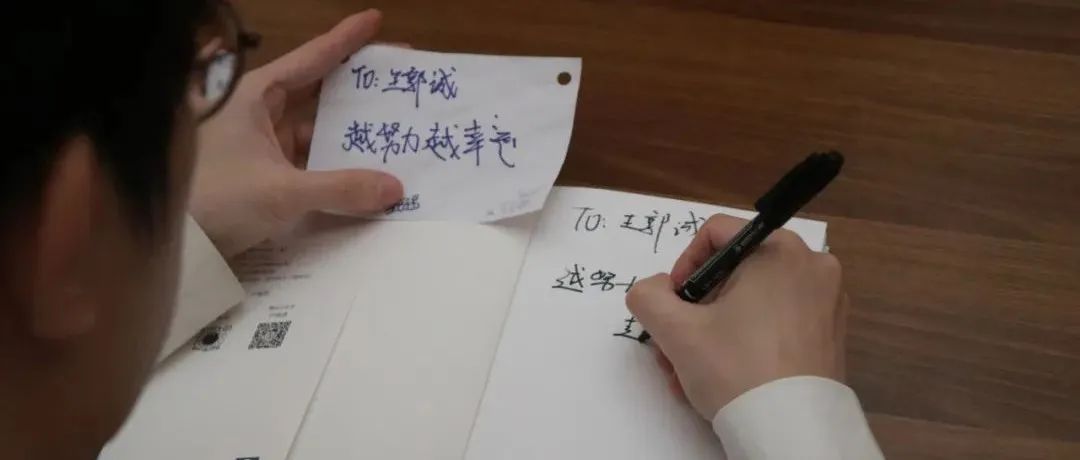 TO: 王郭诚
越努力越幸运
TO: 王郭诚
越努
幸